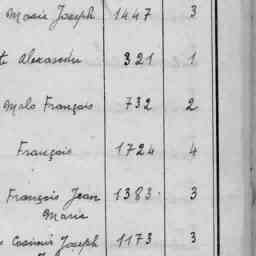 Marie Joseph 1447 3
Alexandre 321 1
Malo François 732 2
François 1724 4
François Jean 1383 3
Marie
Casimir Joseph 1173 3